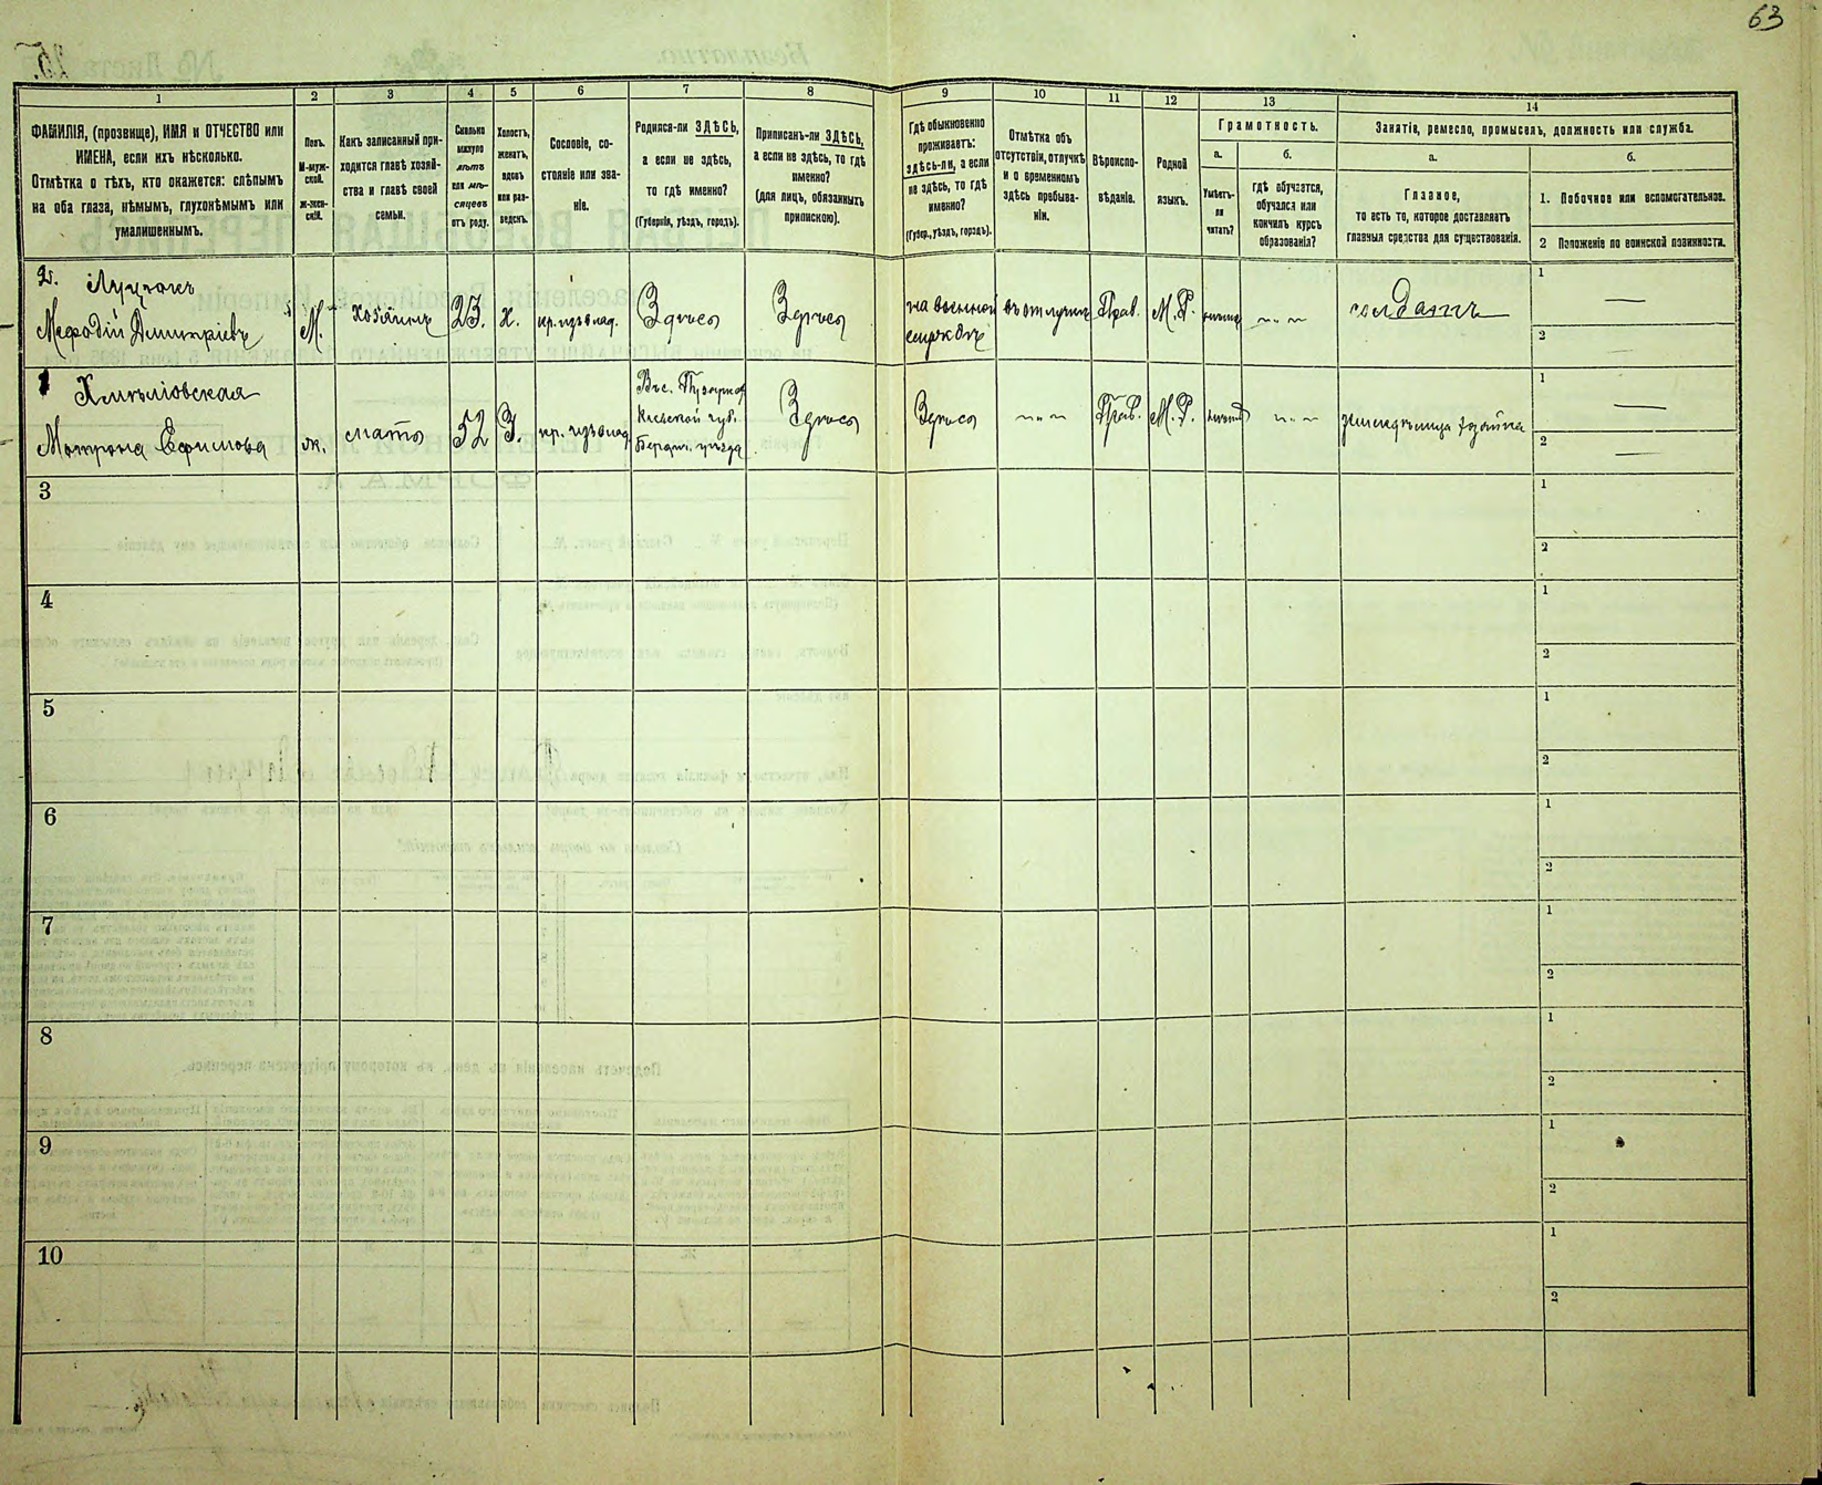 63
1
2
3
4
5
6
7
8
9
10
11
12
13
14
ФАМИЛІЯ, (прозвище), ИМЯ и ОТЧЕСТВО или
ИМЕНА, если ихъ нѣсколько.
Отмѣтка о тѣхъ, кто окажется: слѣпымъ
на оба глаза, нѣмымъ, глухонѣмымъ или
умалишеннымъ.
Полъ.
М-муж-
ской.
ж-жен-
скій.
Какъ записанный при-
ходится главѣ хозяй-
ства и главѣ своей
семьи.
Сколько
минуло
лѣтъ
или мѣ-
сяцевъ
отъ роду.
Холостъ,
женатъ,
вдовъ
или раз-
веденъ.
Сословіе, со-
стояніе или зва-
ніе.
Родился-ли ЗДѢСЬ,
а если не здѣсь,
то гдѣ именно?
(Губернія, уѣздъ, городъ).
Приписанъ-ли ЗДѢСЬ,
а если не здѣсь, то гдѣ
именно?
(для лицъ, обязанныхъ
припискою).
Гдѣ обыкновенно
проживаетъ:
здѣсь-ли, а если
не здѣсь, то гдѣ
именно?
(Губер., уѣздъ, городъ).
Отмѣтка объ
отсутствіи, отлучкѣ
и о временномъ
здѣсь пребыва-
ніи.
Вѣроиспо-
вѣданіе.
Родной
языкъ.
Грамотность.
а.
б.
Умѣетъ-
ли
читать?
гдѣ обучается,
обучался или
кончилъ курсъ
образованія?
Занятіе, ремесло, промыселъ, должность или служба.
а.
б.
Главное,
то есть то, которое доставляетъ
главныя средства для существованія.
1. Побочное или вспомогательное.
2 Положеніе по воинской повинности.
2.
Мефодій Дмитріевъ
М.
хозяинъ
23.
х.
кр. изъ влад.
Здѣсь
Здѣсь
на военной
службѣ
въ отлучкѣ
Прав.
М. Р.
солдатъ
1
2
1 Хмѣліовская
Мотрона Ефимова
ж.
мать
52
кр. изъ влад.
Кіевской губ.
Бердич. уѣзда
Здѣсь
Здѣсь
Прав.
М. Р.
1
2
3
1
2
4
1
2
5
1
2
6
1
2
7
1
2
8
1
2
9
1
2
10
1
2